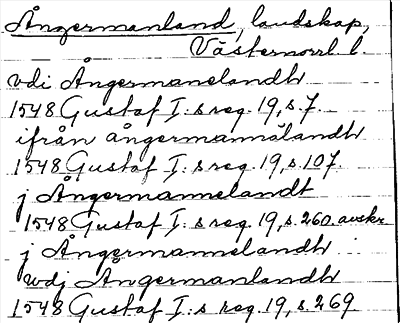 Ångermanland, landskap,
Västernorrl. l.
vdi Ångermanelandh
1548 Gustaf I:s reg. 19, s. 7.
ifrån ångermannalandh
1548 Gustaf I:s reg. 19, s. 107.
j Ångermannelandt
1548 Gustaf I:s reg. 19, s. 260. avskr.
j Ångermannelandh
wdj Ångermanlandh
1548 Gustaf I:s reg. 19, s. 269